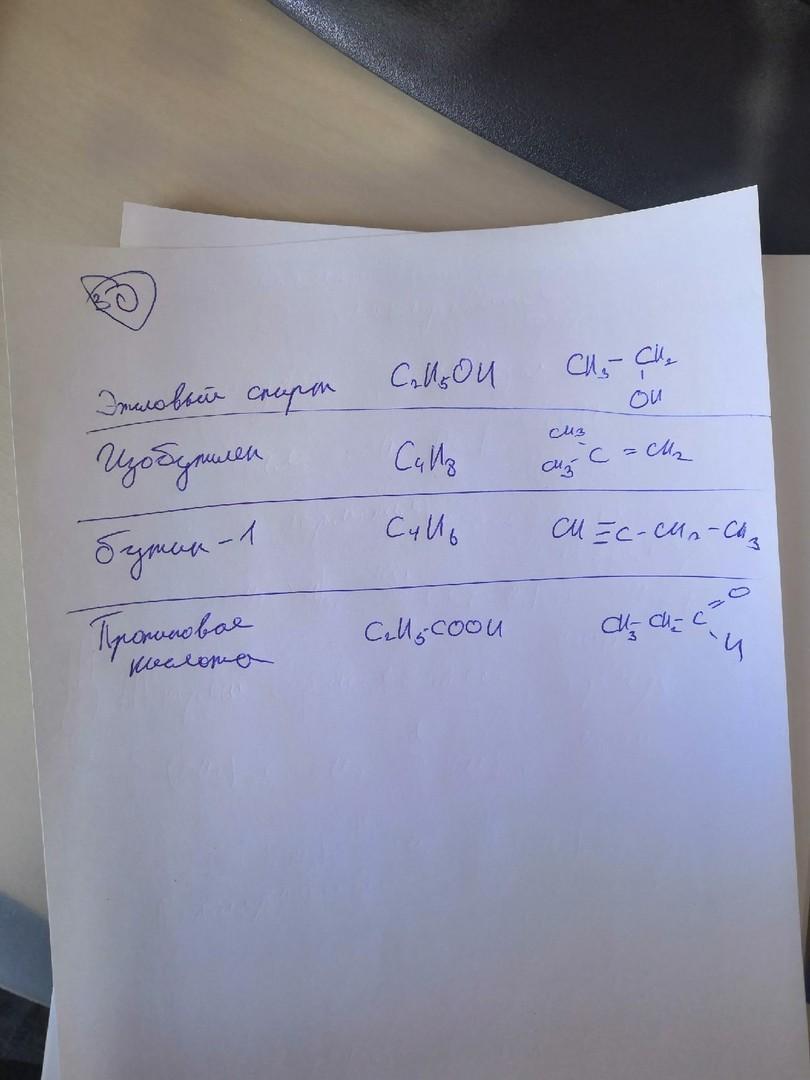 30
Этиловый спирт C₂H₅OH CH₃ - CH₂
OH
Изобутилен C₄H₈ CH₃ CH₃ C = CH₂
бутин - 1 C₄H₆ CH ≡ C - CH₂ - CH₃
Пропиловая C₂H₅-COOH CH₃- CH₂- C = O
кислота H